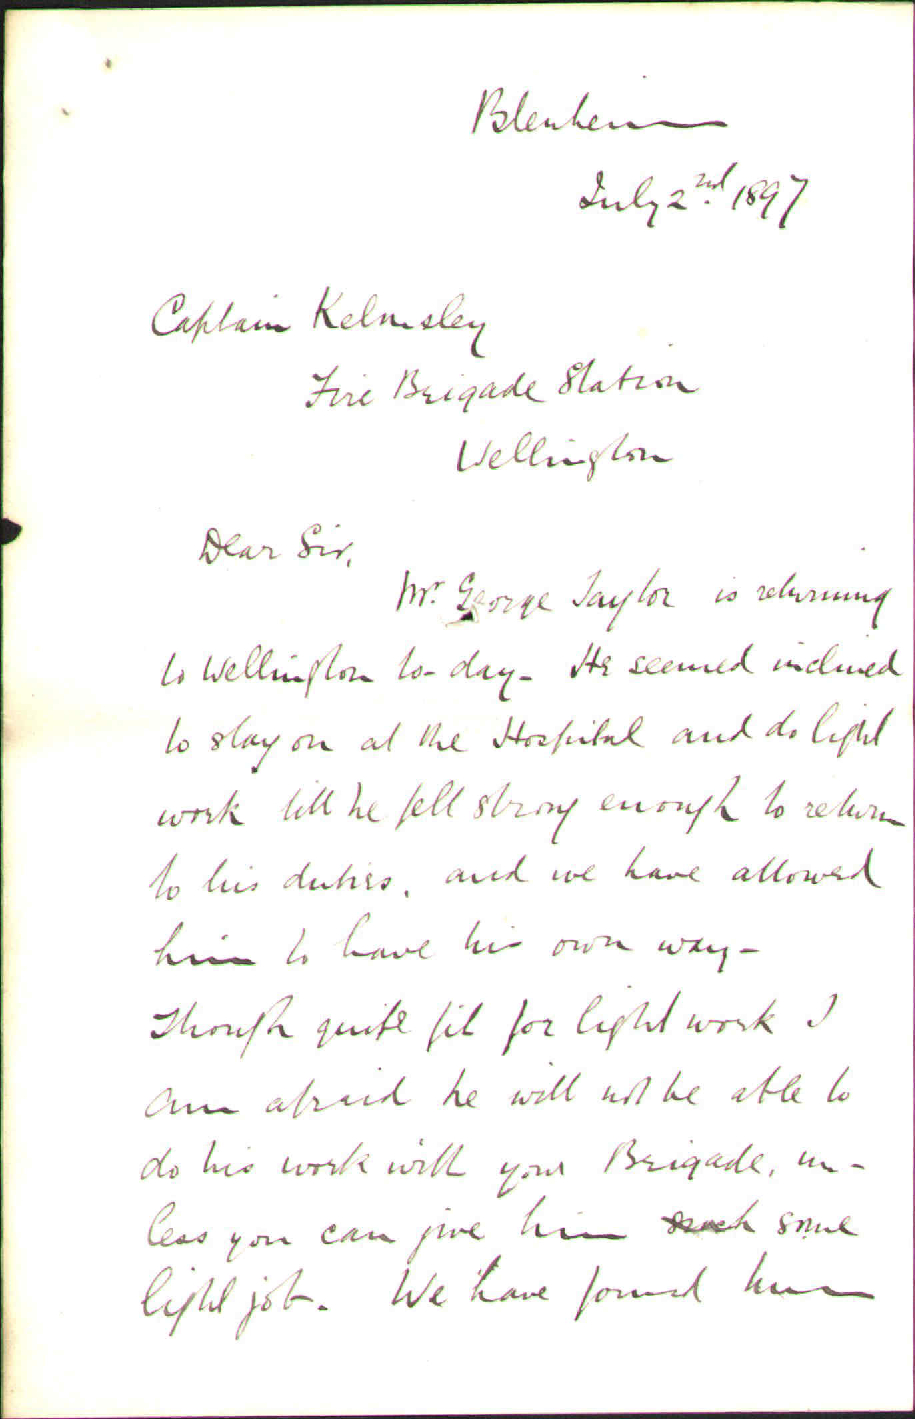 Blenheim
July 2nd. 1897
Captain Kelmsley
Fire Brigade Station
Wellington
Dear Sir,
Mr. George Taylor is returning
to Wellington to-day - He seemed inclined
to stay on at the Hospital and do light
work till he felt strong enough to return
to his duties, and we have allowed
him to have his own way -
Though quite fit for light work I
am afraid he will not be able to
do his work with your Brigade, un-
less you can give him such some
light job. We have found him